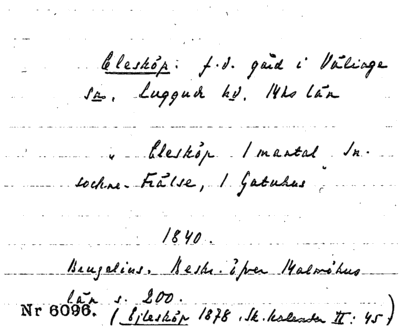 Eleshöp: f.d. gård i Välinge
sn, Luggude hd, Mhs län
"Eleshöp 1 mantal In-
sockne-Frälse, 1 Gatuhus"
1840.
Bengelius. Beskr. öfver Malmöhus
län s. 200.
Nr 6096. (Ejleshöp 1878, Sk. kalender III: 45)